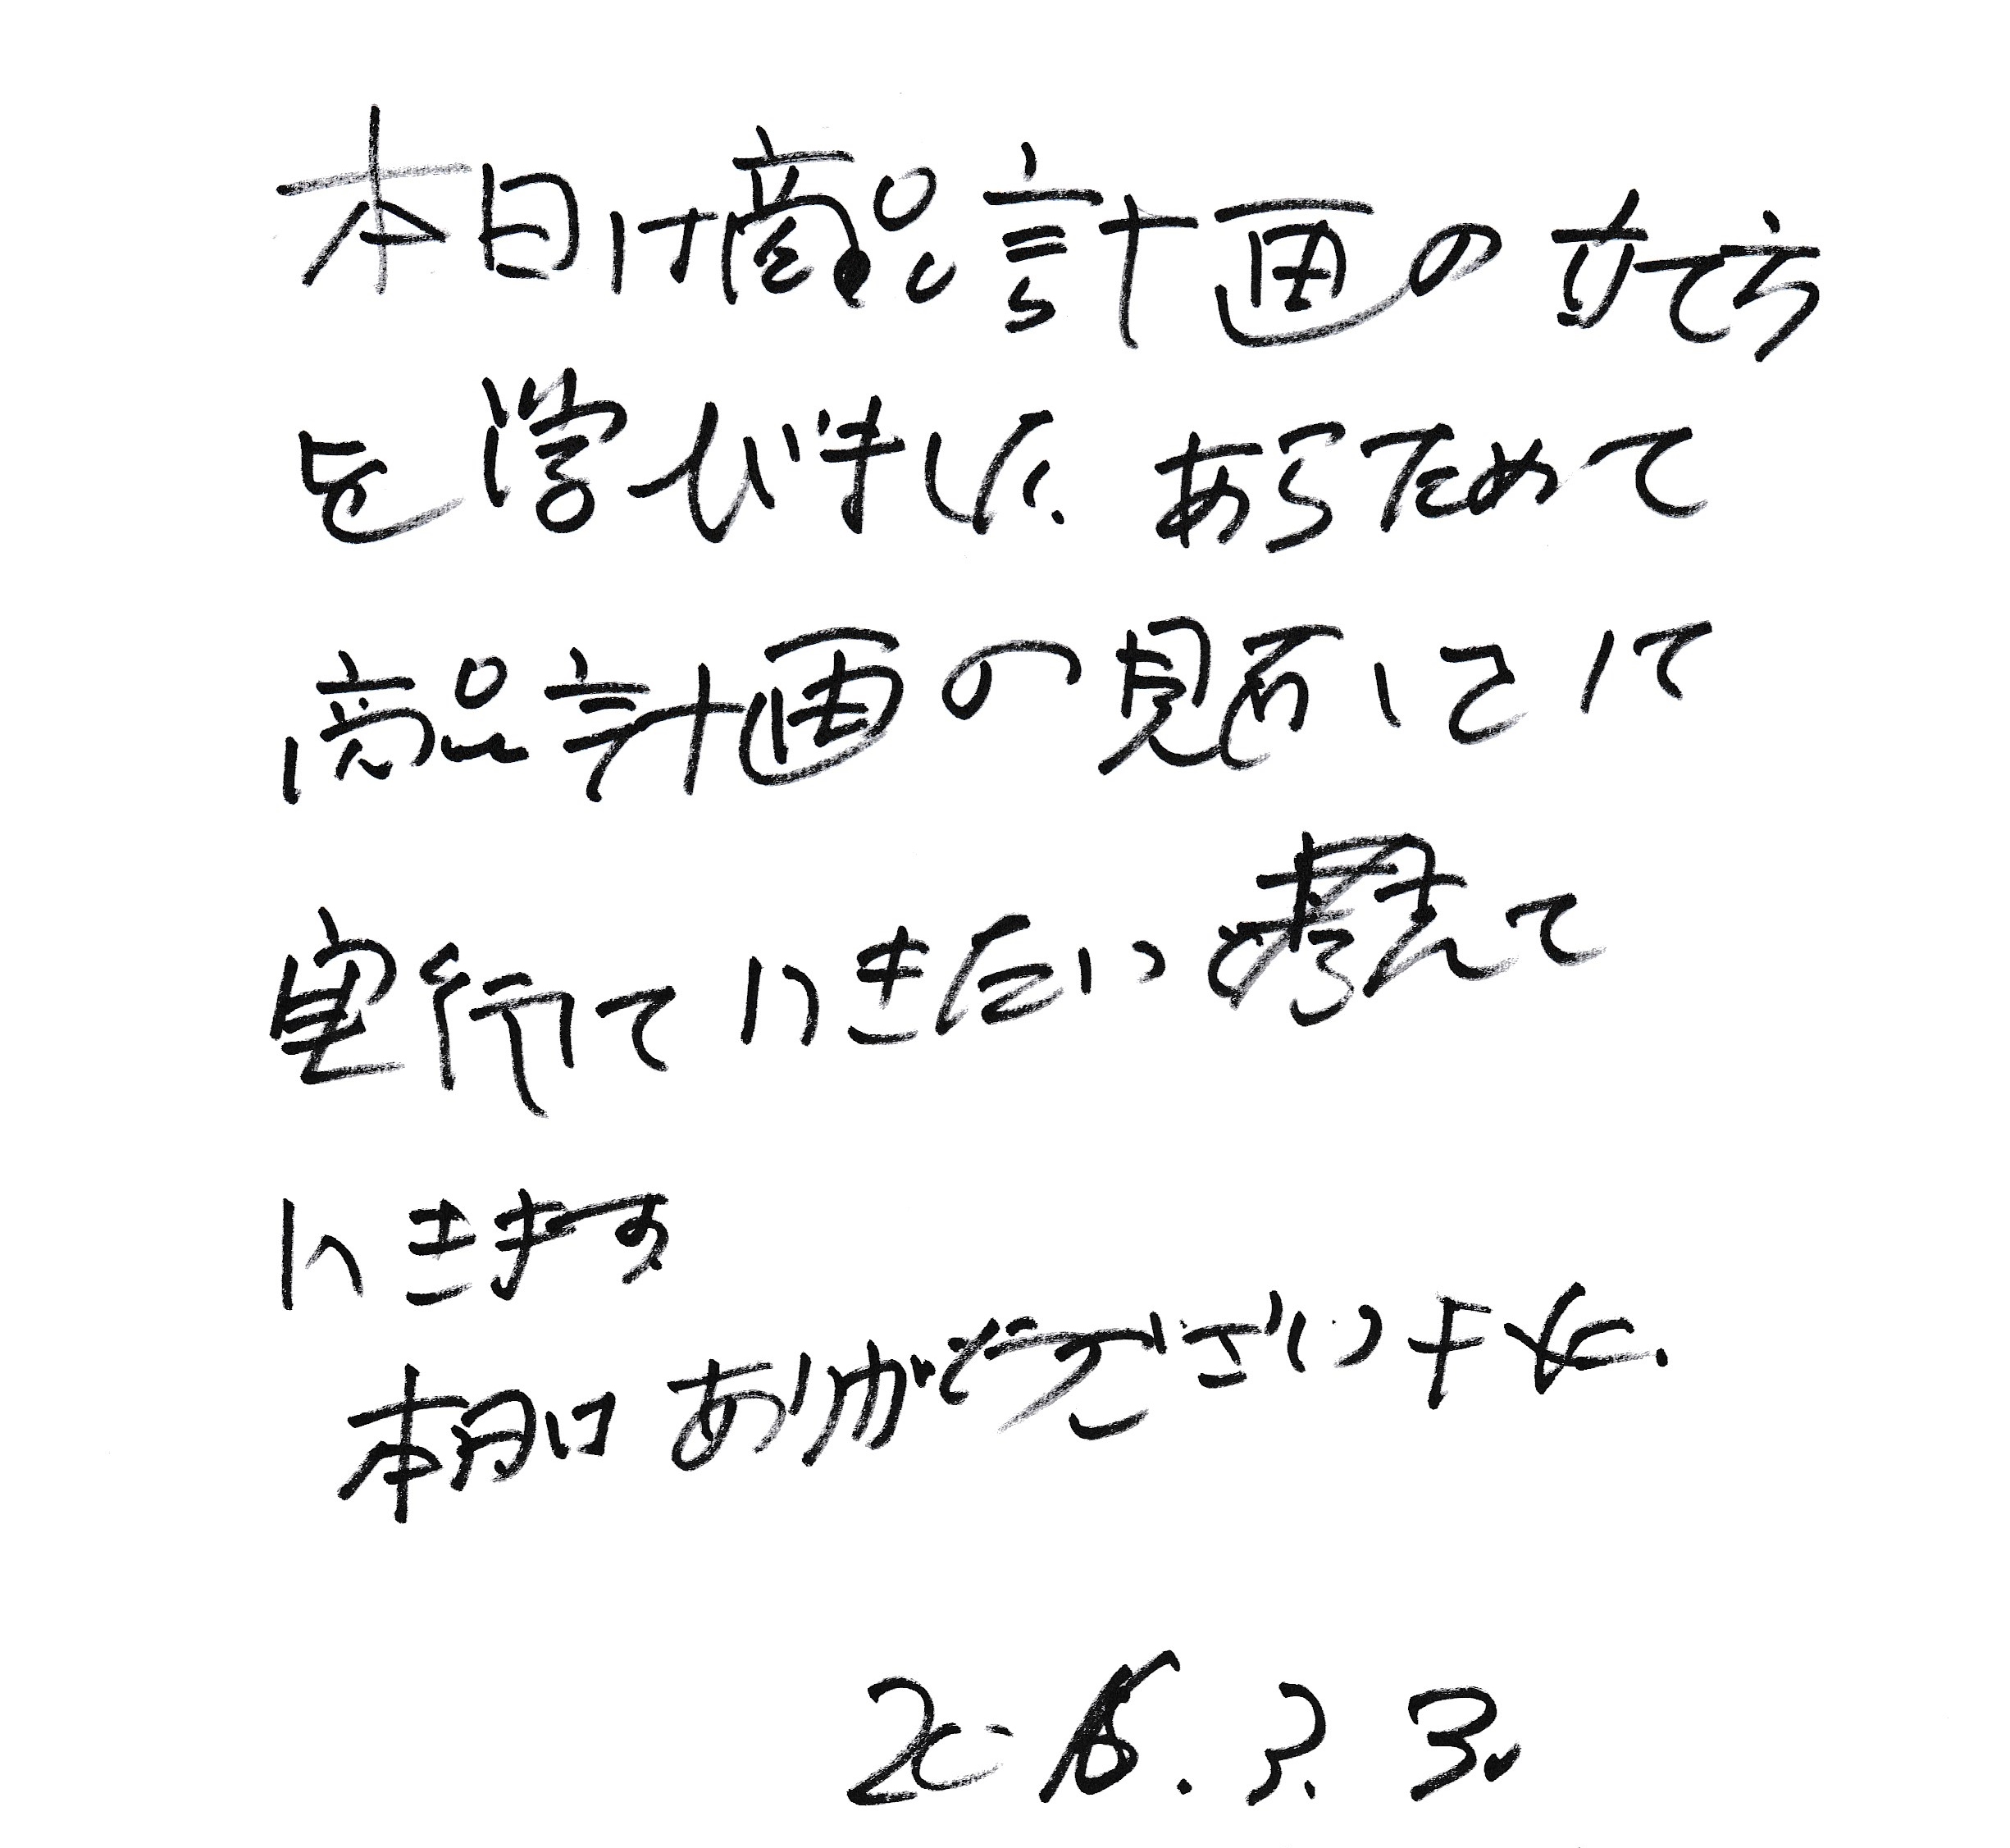 本日は商品計画の立て方
を学びました. あらためて
商品計画の見直しを
実行していきたい考えて
いきます
本日は ありがとうございました.
2016. 3. 3.